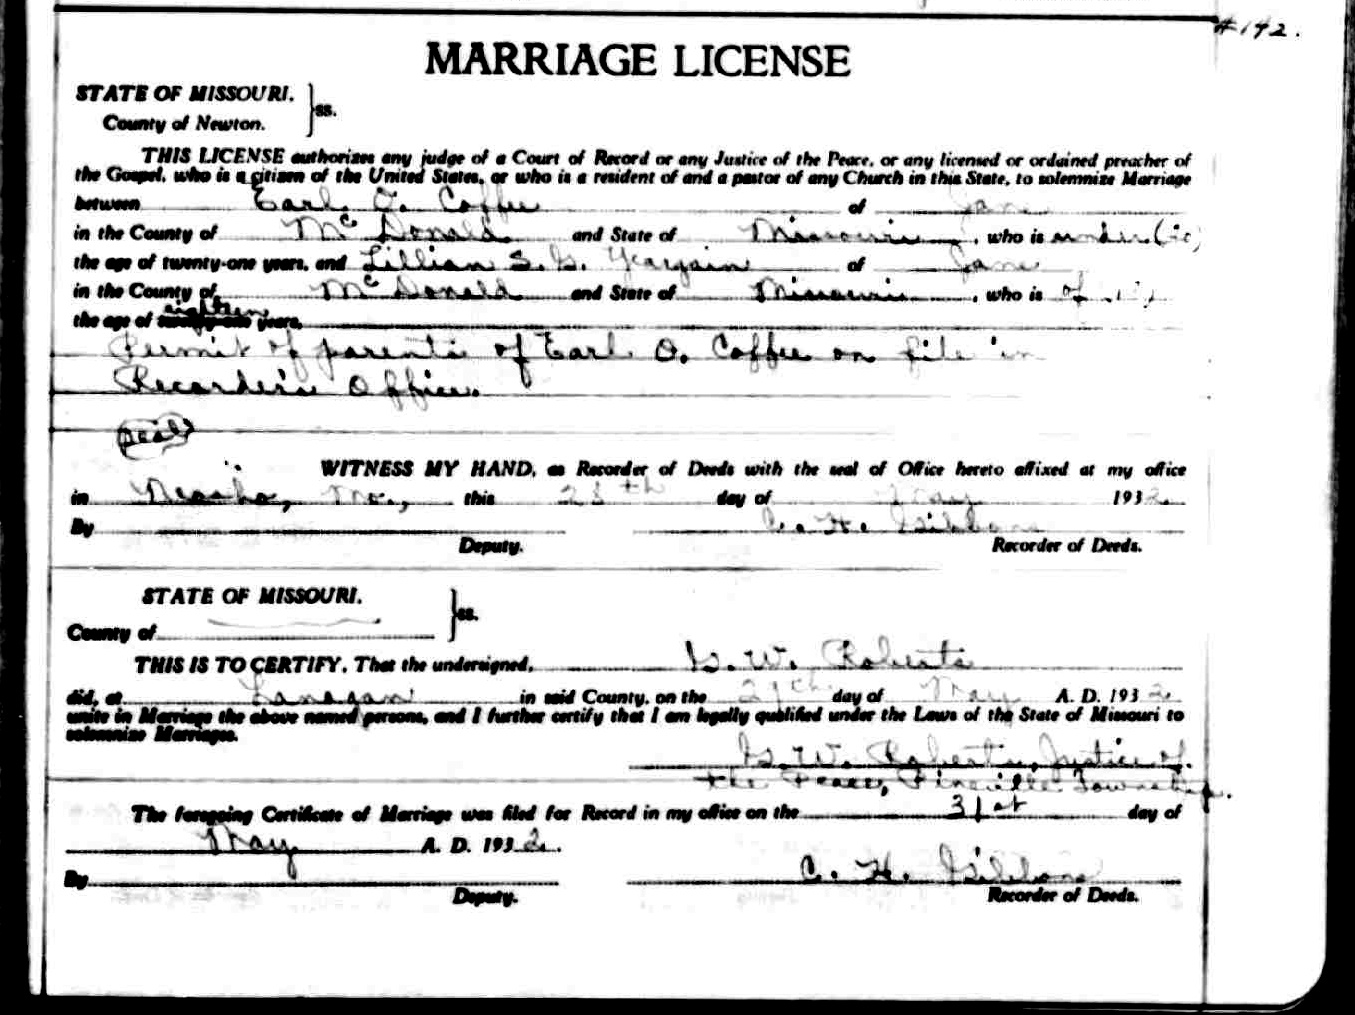 #142.
MARRIAGE LICENSE
STATE OF MISSOURI. } ss.
County of Newton.
THIS LICENSE authorizes any judge of a Court of Record or any Justice of the Peace, or any licensed or ordained preacher of
the Gospel, who is a citizen of the United States, or who is a resident of and a pastor of any Church in this State, to solemnize Marriage
between Earl O. Coffee of Jane
in the County of McDonald and State of Missouri, who is under
the age of twenty-one years, and Lillian S. G. Yeargain of Jane
in the County of McDonald and State of Missouri, who is of
the age of eighteen years,
Permit of parents of Earl O. Coffee on file in
Recorder's Office.
Seal
WITNESS MY HAND, as Recorder of Deeds with the seal of Office hereto affixed at my office
in Neosho, Mo., this 28th day of May 1932.
By C. H. Gibbons
Deputy. Recorder of Deeds.
STATE OF MISSOURI. } ss.
County of
THIS IS TO CERTIFY, That the undersigned, G. W. Roberts
did, at Lanagan in said County, on the 29th day of May A. D. 1932
unite in Marriage the above named persons, and I further certify that I am legally qualified under the Laws of the State of Missouri to
solemnize Marriages.
G. W. Roberts, Justice of
the Peace, Pineville Township.
The foregoing Certificate of Marriage was filed for Record in my office on the 31st day of
May A. D. 1932.
By C. H. Gibbons
Deputy. Recorder of Deeds.